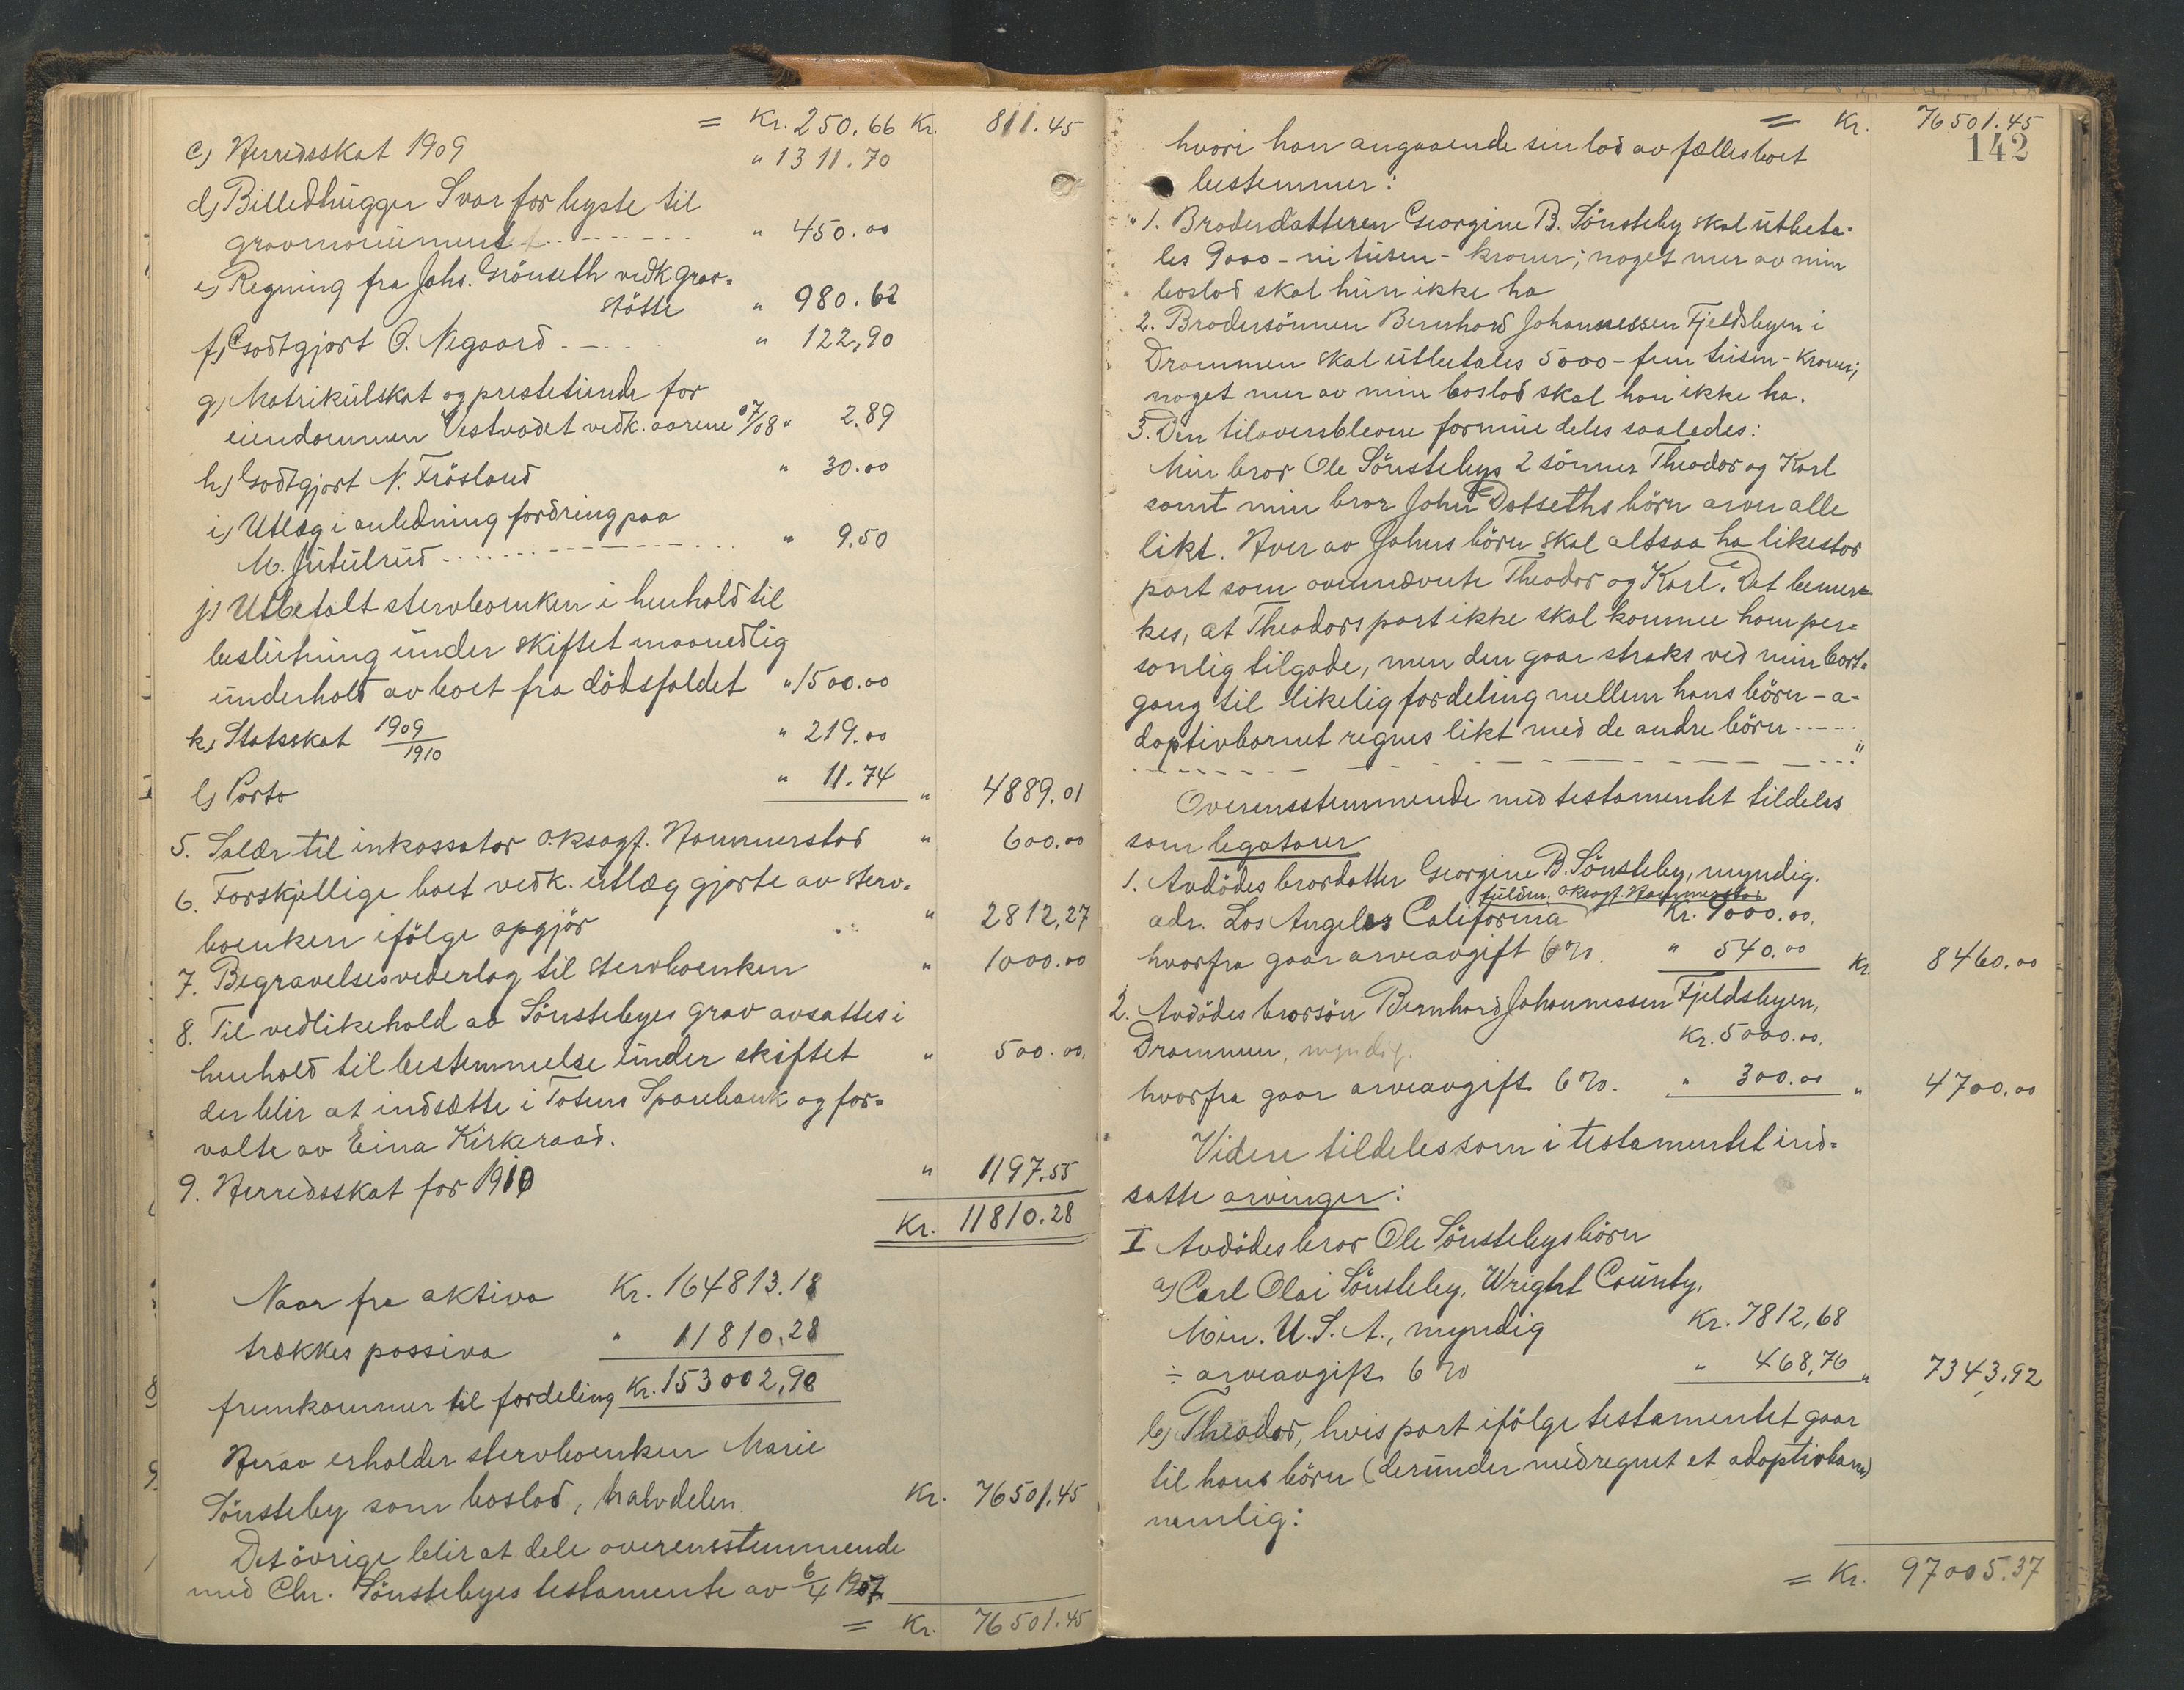 = Kr. 250.66 Kr. 811.45
c) Herredsskat 1909 " 1311.70
d) Billedhugger Svor for byste til
gravmonument " 450.00
e) Regning fra Johs. Grönseth vedk grav-
stötte " 980.62
f) Godtgjort O. Negaard " 122,90
g) Matrikulskat og prestetiende for
eiendommen Vestvadet vedk. aarene 07/08 " 2.89
h) Godtgjort N. Frösland " 30.00
i) Utlæg i anledning fordring paa
M. Jutulrud " 9.50
j) Utbetalt stervboenken i henhold til
beslutning under skiftet maanedlig
underhold av boet fra dödsfaldet " 1500.00
k) Statsskat 1909/1910 " 219.00
l) Porto " 11.74 " 4889.01
5. Salær til inkassator o.ksagf. Hammerstad " 600.00
6. Forskjellige boet vedk. utlæg gjorte av sterv-
boenken ifölge opgjör " 2812,27
7. Begravelsesvederlag til stervboenken " 1000.00
8. Til vedlikehold av Sönstebyes grav avsattes i
henhold til bestemmelse under skiftet " 500.00.
der blir at indsætte i Totens Sparebank og for-
valte av Eina Kirkeraad.
9. Herredsskat for 1910 " 1197.55
Kr. 11810.28
Naar fra aktiva Kr. 164813.18
trækkes passiva " 11810.28
fremkommer til fordeling Kr. 153002,90
Herav erholder stervboenken Marie
Sönsteby som boslod, halvdelen Kr. 76501.45
Det övrige blir at dele overensstemmende
med Chr. Sönstebyes testamente av 6/4 1907
= Kr. 76501.45
= Kr. 76501.45
142
hvori han angaaende sin lod av fællesboet
bestemmer:
"1. Broderdatteren Georgine B. Sönsteby skal utbeta-
les 9000 - ni tusen - kroner; noget mer av min
boslod skal hun ikke ha
2. Brodersönnen Bernhard Johannessen Fjeldsbyen i
Drammen skal utbetales 5000 - fem tusen - Kroner;
noget mer av min boslod skal han ikke ha.
3. Den tiloversblevne formue deles saaledes:
Min bror Ole Sönstebys 2 sönner Theodor og Karl
samt min bror John Dotseths börn arver alle
likt. Hver av Johns börn skal altsaa ha likestor
part som ovennævnte Theodor og Karl. Det bemer-
kes, at Theodors part ikke skal komme ham per-
sonlig tilgode, men den gaar straks ved min bort-
gang til likelig fordeling mellem hans börn - a-
doptivbarnet regnes likt med de andre börn
"
Overensstemmende med testamentet tildeles
som legatarer
1. Avdödes brordatter Georgine B. Sönsteby, myndig,
fuldm. oksagf. Hammerstad
adr. Los Angeles California Kr. 9000.00,
hvorfra gaar arveavgift 6%. " 540.00 Kr. 8460.00
2. Avdödes brorsön Bernhard Johannessen Fjeldsbyen,
Drammen, myndig. Kr. 5000.00,
hvorfra gaar arveavgift 6%. " 300.00 " 4700.00
Videre tildeles som i testamentet ind-
satte arvinger:
I Avdödes bror Ole Sönstebys börn
a) Carl Olai Sönsteby, Wright County,
Min. U.S.A., myndig Kr. 7812,68
÷ arveavgift 6% " 468,76 " 7343,92
b) Theodor, hvis part ifölge testamentet gaar
til hans börn (derunder medregnet et adoptivbarn)
nemlig:
= Kr. 97005.37